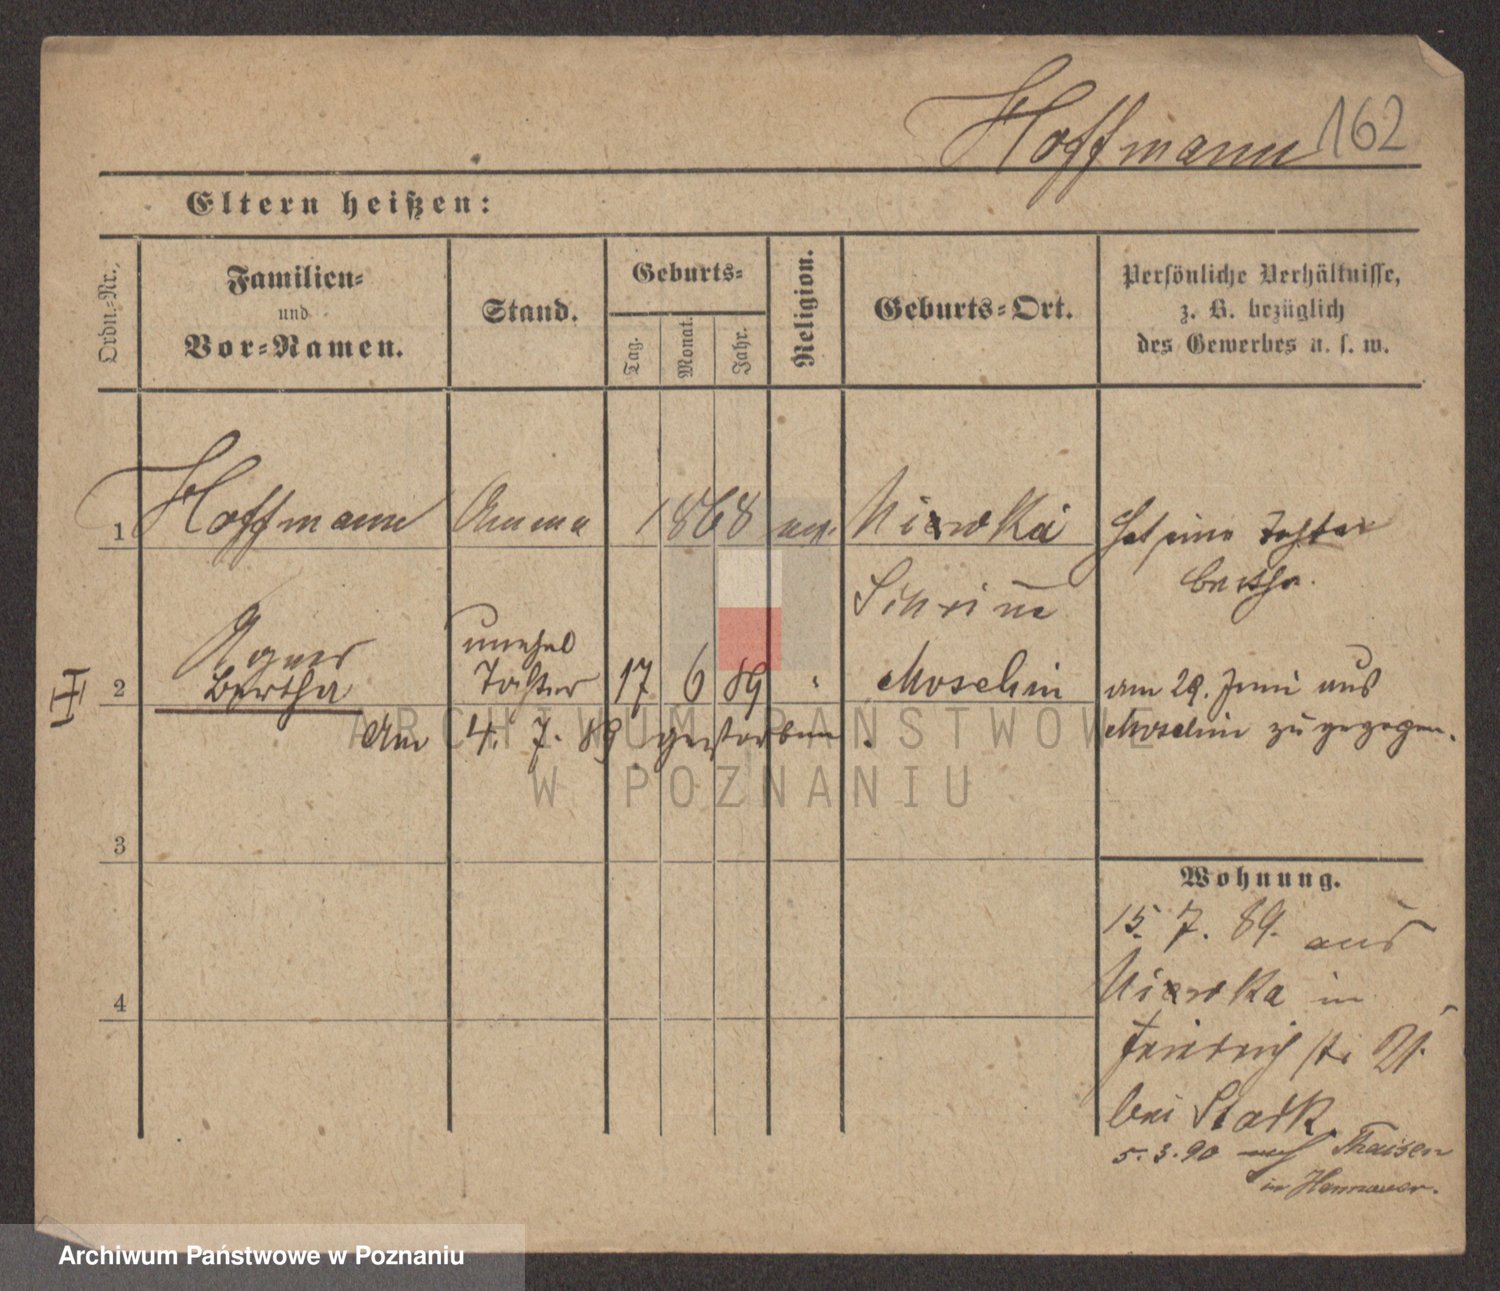 Hoffmann 162
Eltern heißen:
Ordn.-Nr.
Familien-
und
Vor-Namen.
Stand.
Geburts-
Tag.
Monat.
Jahr.
Religion.
Geburts-Ort.
Persönliche Verhältnisse,
z. B. bezüglich
des Gewerbes u. s. w.
1 Hoffmann Amme 1868 ev. hat eine Tochter
Bertha.
Schrimm
Agnes
unehel
II 2 Bertha Tochter 17 6 89 Moschin am 29. Juni aus
Moschin zugezogen.
Am 4. 7. 89 gestorben.
3
Wohnung.
15. 7. 89. aus
in
4
Friedrichstr 21.
bei Stark.
5. 3. 90 nach Thaisen
in Hannover.
ARCHIWUM PAŃSTWOWE
W POZNANIU
Archiwum Państwowe w Poznaniu